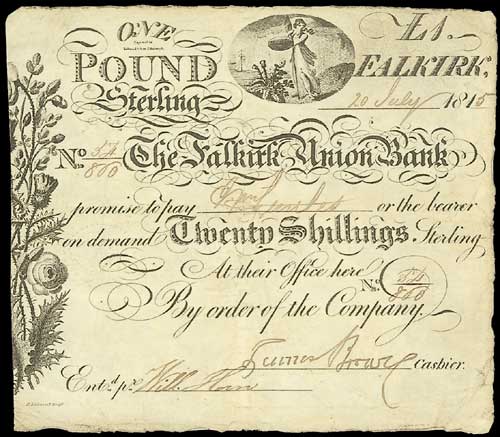 ONE
POUND
Sterling
£1.
FALKIRK,
20 July 1815
No. 54/860
The Falkirk Union Bank
promise to pay or the bearer
on demand Twenty Shillings Sterling
At their Office here
No. 54/860
By order of the Company.
James Brown Cashier.
Entd. pr. Will.